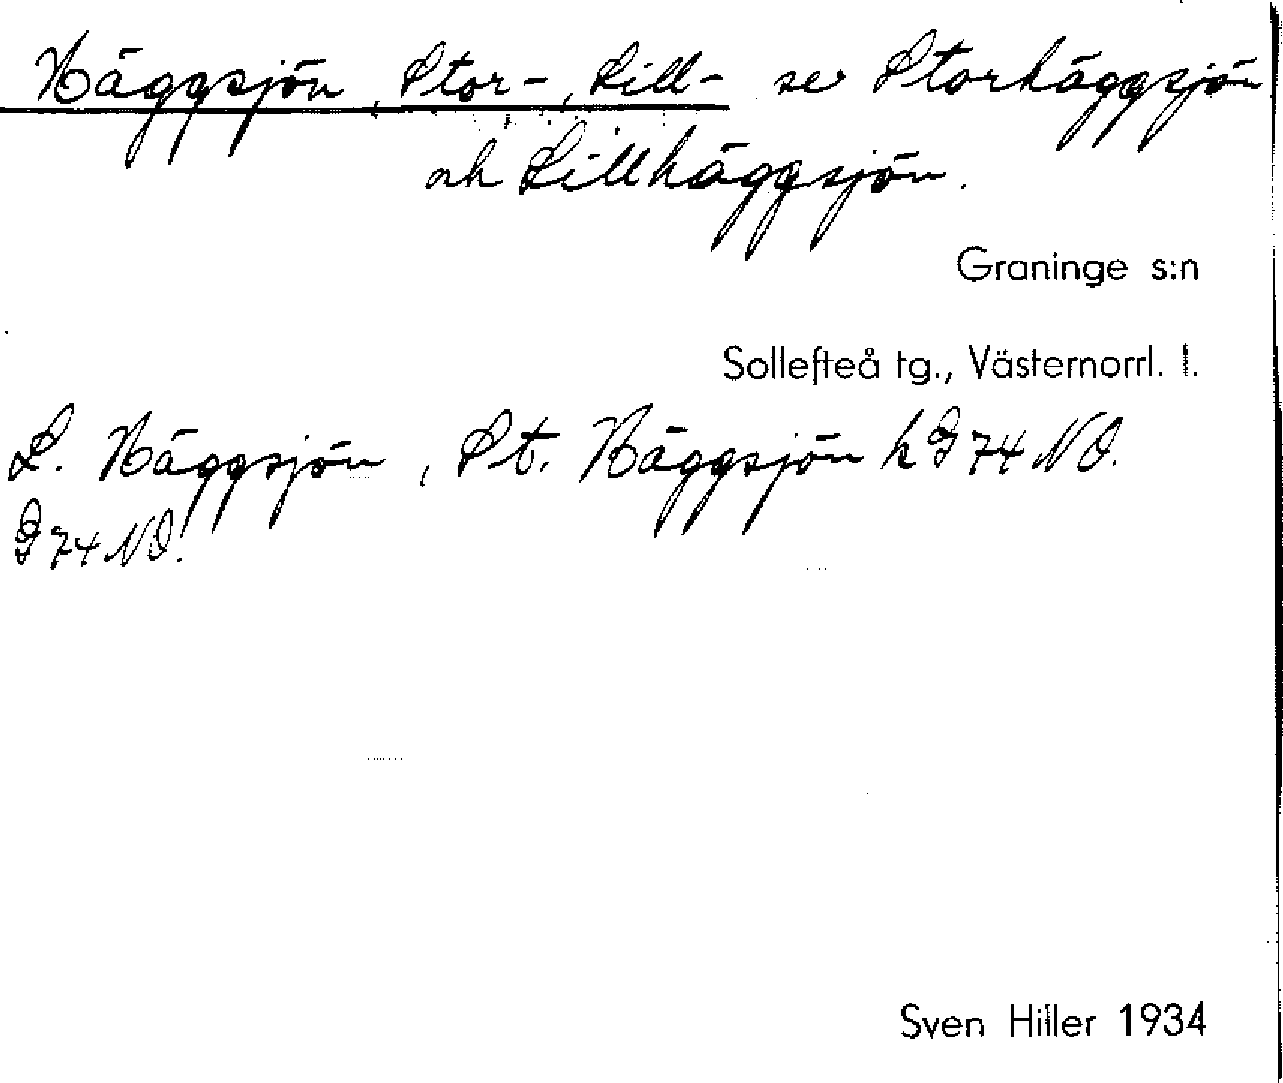 Häggsjön, Stor-, Lill- se Storhäggsjön
och Lillhäggsjön.
Graninge s:n
Sollefteå tg., Västernorrl. l.
L. Häggsjön, St. Häggsjön k G 74 NO.
G 74 NO.
Sven Hiller 1934